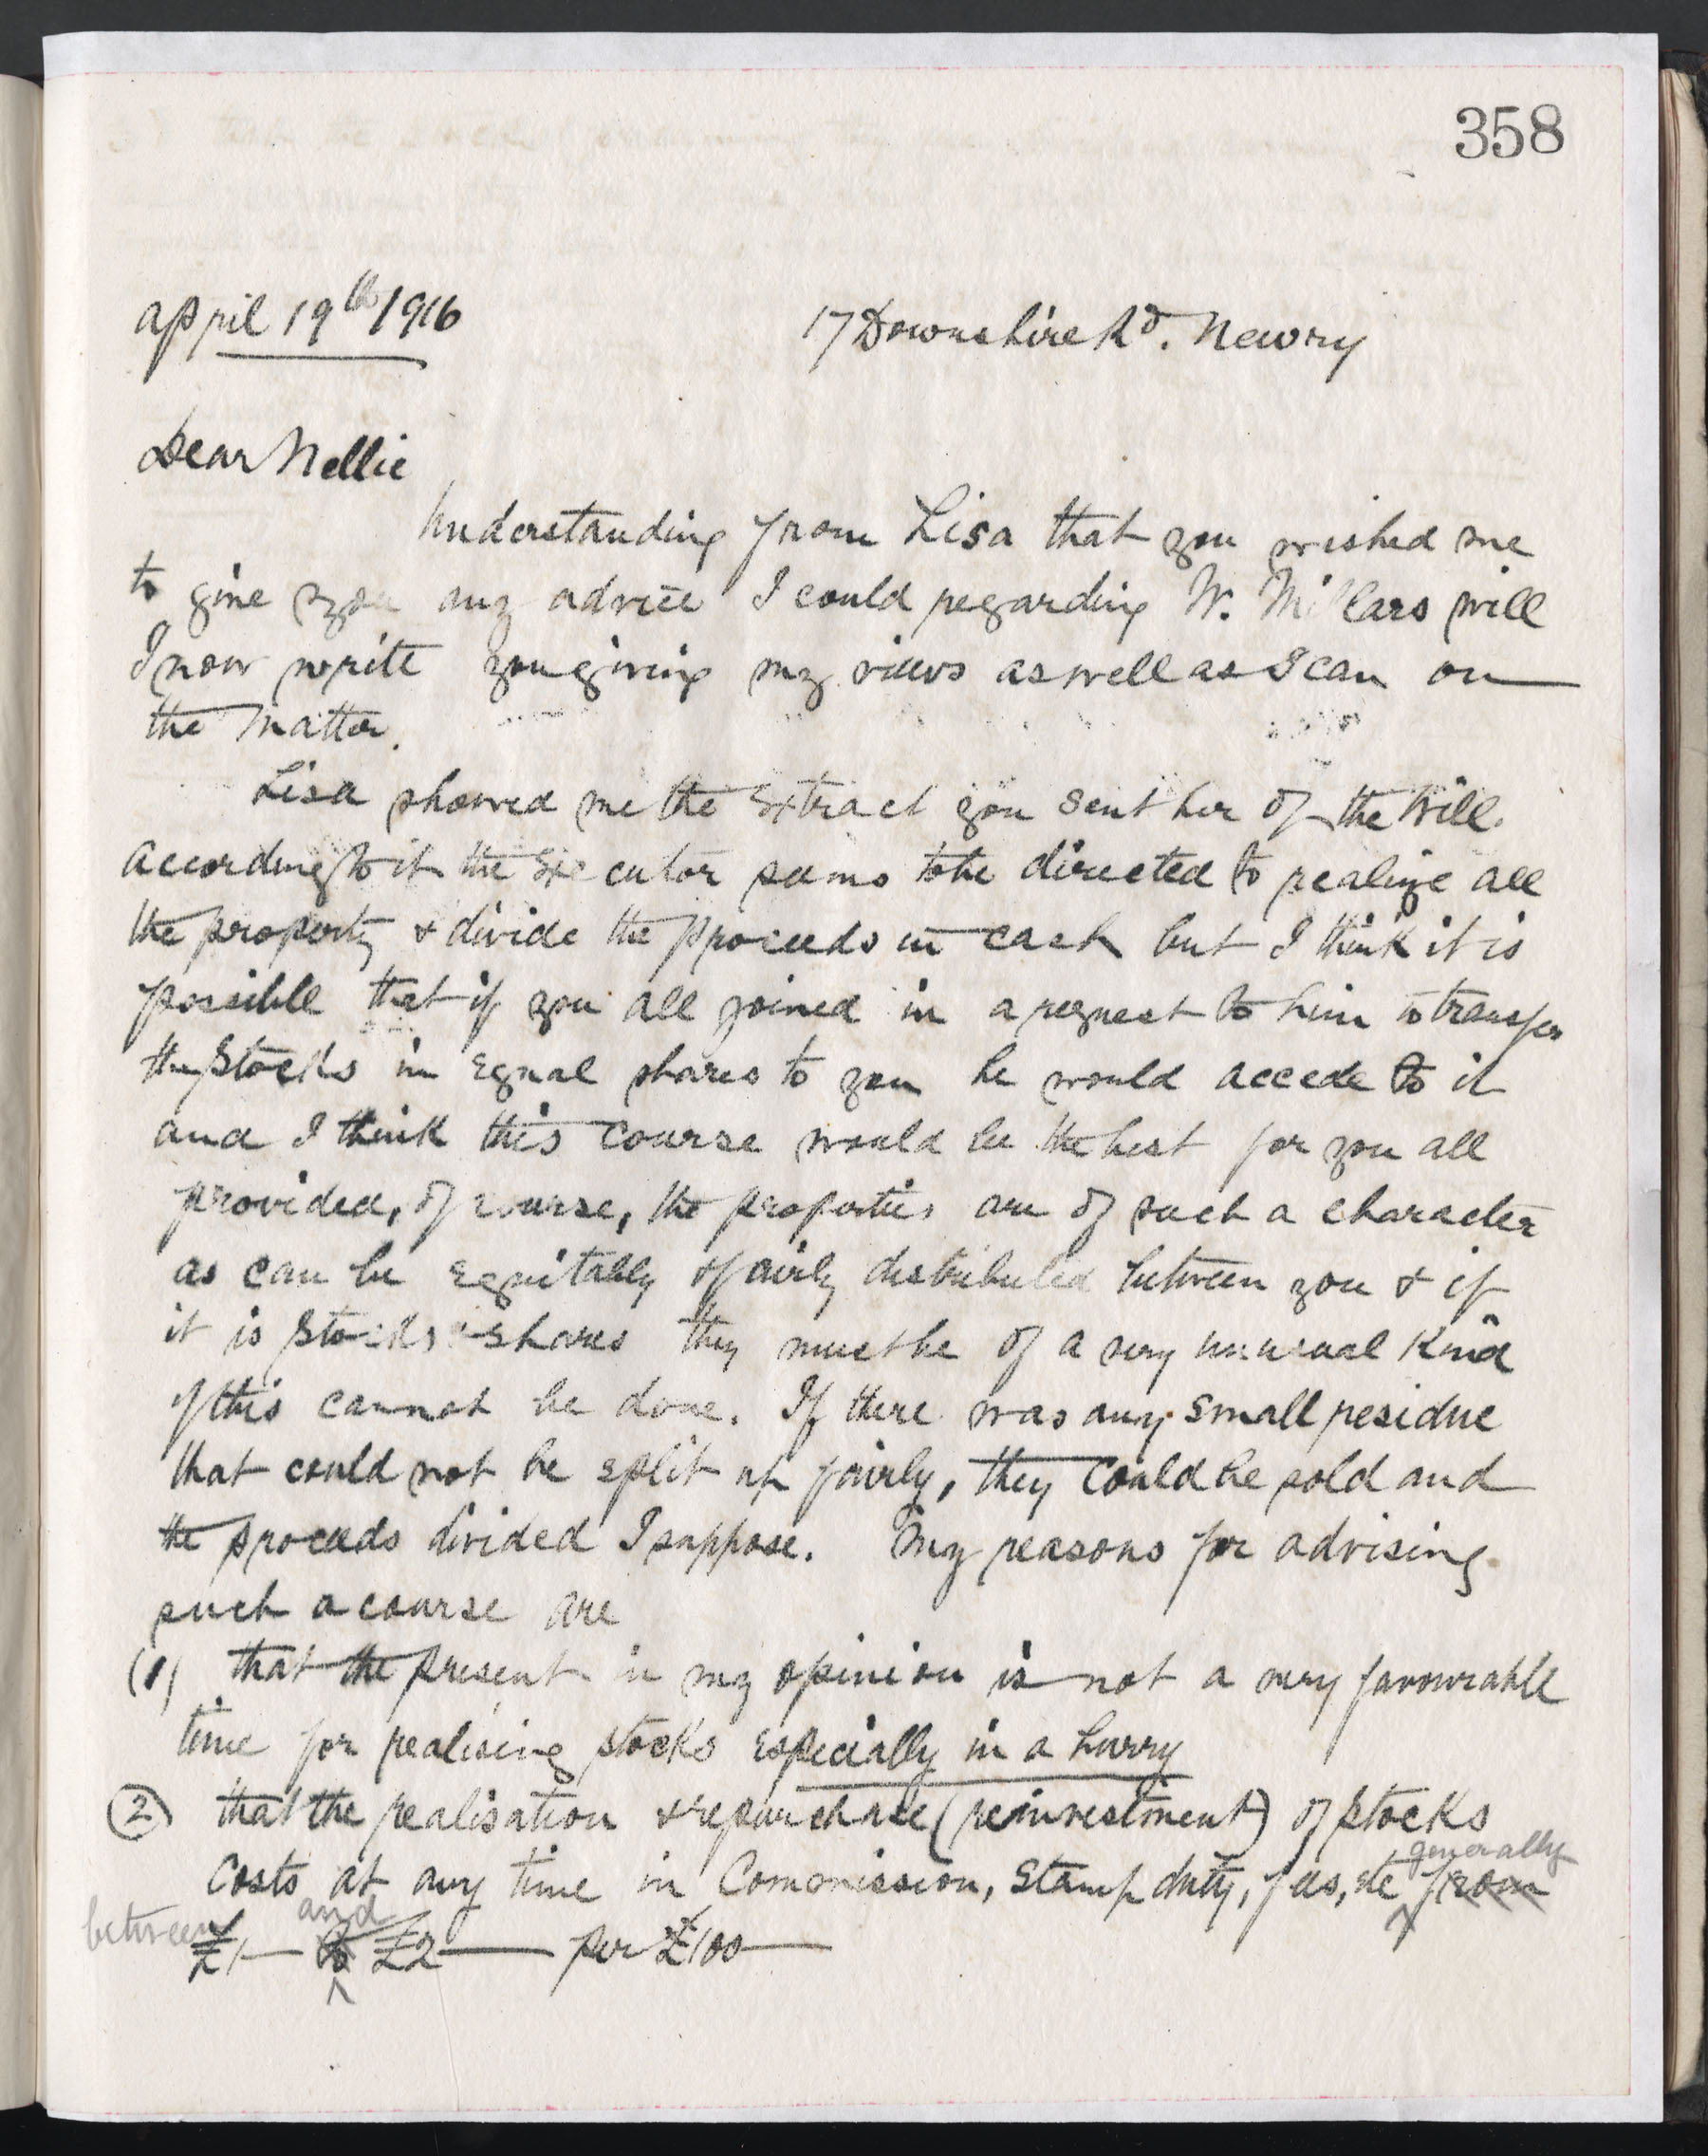 358
April 19th 1916
17 Downshire Rd. Newry
Dear Nellie
Understanding from Lisa that you wished me
to give you any advice I could regarding W. Millars will
I now write you giving my views as well as I can on
the matter.
Lisa showed me the extract you sent her of the Will.
According to it the Executor seems to be directed to realize all
the property & divide the proceeds in cash but I think it is
possible that if you all joined in a request to him to transfer
the stocks in equal shares to you he would accede to it
and I think this course would be the best for you all
provided, of course, the properties are of such a character
as can be equitably & fairly distributed between you & if
it is stocks & shares they must be of a very unusual kind
if this cannot be done. If there was any small residue
that could not be split up fairly, they could be sold and
the proceeds divided I suppose. My reasons for advising
such a course are
(1) that the present in my opinion is not a very favourable
time for realising stocks especially in a hurry
(2) that the realisation & repurchase (reinvestment) of stocks
generally
costs at any time in Commission, Stamp duty, fees, etc from
between and
£1 — to £2 — per £100 —